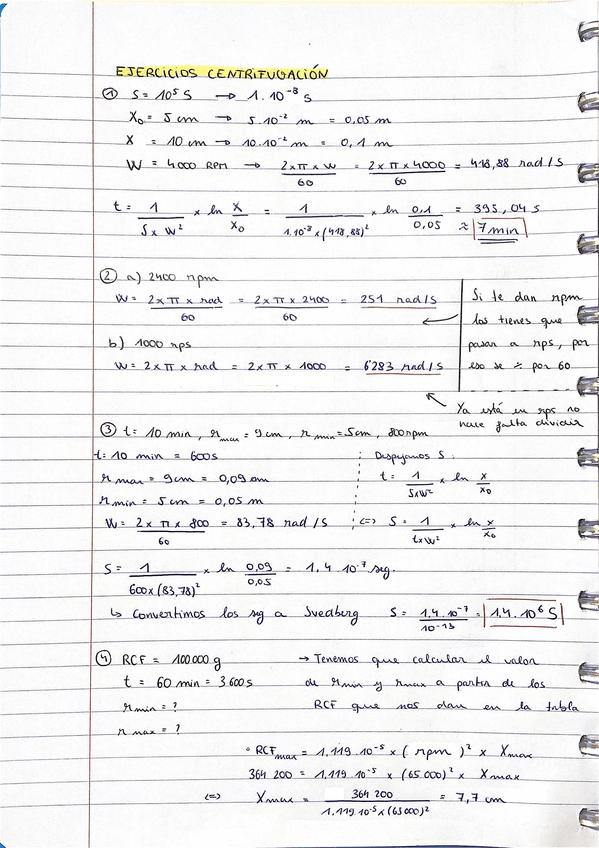 EJERCICIOS CENTRIFUGACIÓN
① S = 10⁵ S → 1.10⁻⁸ s
X₀ = 5 cm → 5.10⁻² m = 0,05 m
X = 10 cm → 10.10⁻² m = 0,1 m
W = 4000 RPM → 2×π×w/60 = 2×π×4000/60 = 418,88 rad/s
t = 1/(S×W²) × ln X/X₀ = 1/(1.10⁻⁸×(418,88)²) × ln 0,1/0,05 = 395,04 s
≈ 7 min
② a) 2400 rpm
W = 2×π×rad/60 = 2×π×2400/60 = 251 rad/s
b) 1000 rps
W = 2×π×rad = 2×π×1000 = 6'283 rad/s
Si te dan rpm
los tienes que
pasar a rps, por
eso se ÷ por 60
Ya está en rps no
hace falta dividir
③ t = 10 min, r max = 9cm, r min = 5cm, 800rpm
t = 10 min = 600s
r max = 9cm = 0,09 cm
r min = 5 cm = 0,05 m
W = 2×π×800/60 = 83,78 rad/s
Despejamos S:
t = 1/(S×W²) × ln x/x₀
⇔ S = 1/(t×W²) × ln x/x₀
S = 1/(600×(83,78)²) × ln 0,09/0,05 = 1,4.10⁻⁷ seg.
↳ Convertimos los seg a Svedberg S = 1,4.10⁻⁷/10⁻¹³ = 1,4.10⁶ S
④ RCF = 100.000 g
t = 60 min = 3600s
r min = ?
r max = ?
→ Tenemos que calcular el valor
de r min y r max a partir de los
RCF que nos dan en la tabla
• RCF max = 1,119.10⁻⁵ × (rpm)² × Xmax
364 200 = 1,119.10⁻⁵ × (65.000)² × Xmax
⇔ Xmax = 364 200/(1,119.10⁻⁵×(65000)²) = 7,7 cm